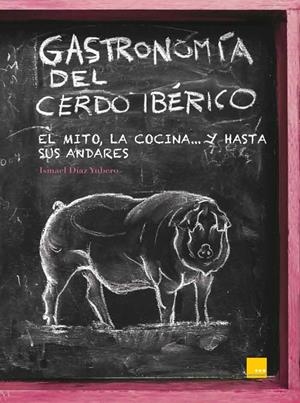 GASTRONOMÍA
DEL
CERDO IBÉRICO
EL MITO, LA COCINA... Y HASTA
SUS ANDARES
Ismael Díaz Yubero